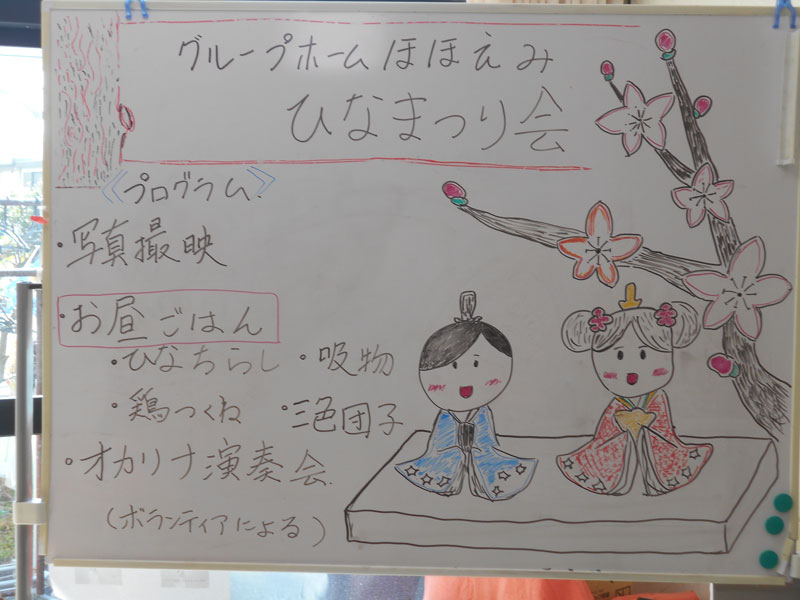 グループホームほほえみ
ひなまつり会
《プログラム》
・写真撮映
・お昼ごはん
・ひなちらし ・吸物
・鶏つくね ・三色団子
・オカリナ演奏会
(ボランティアによる)